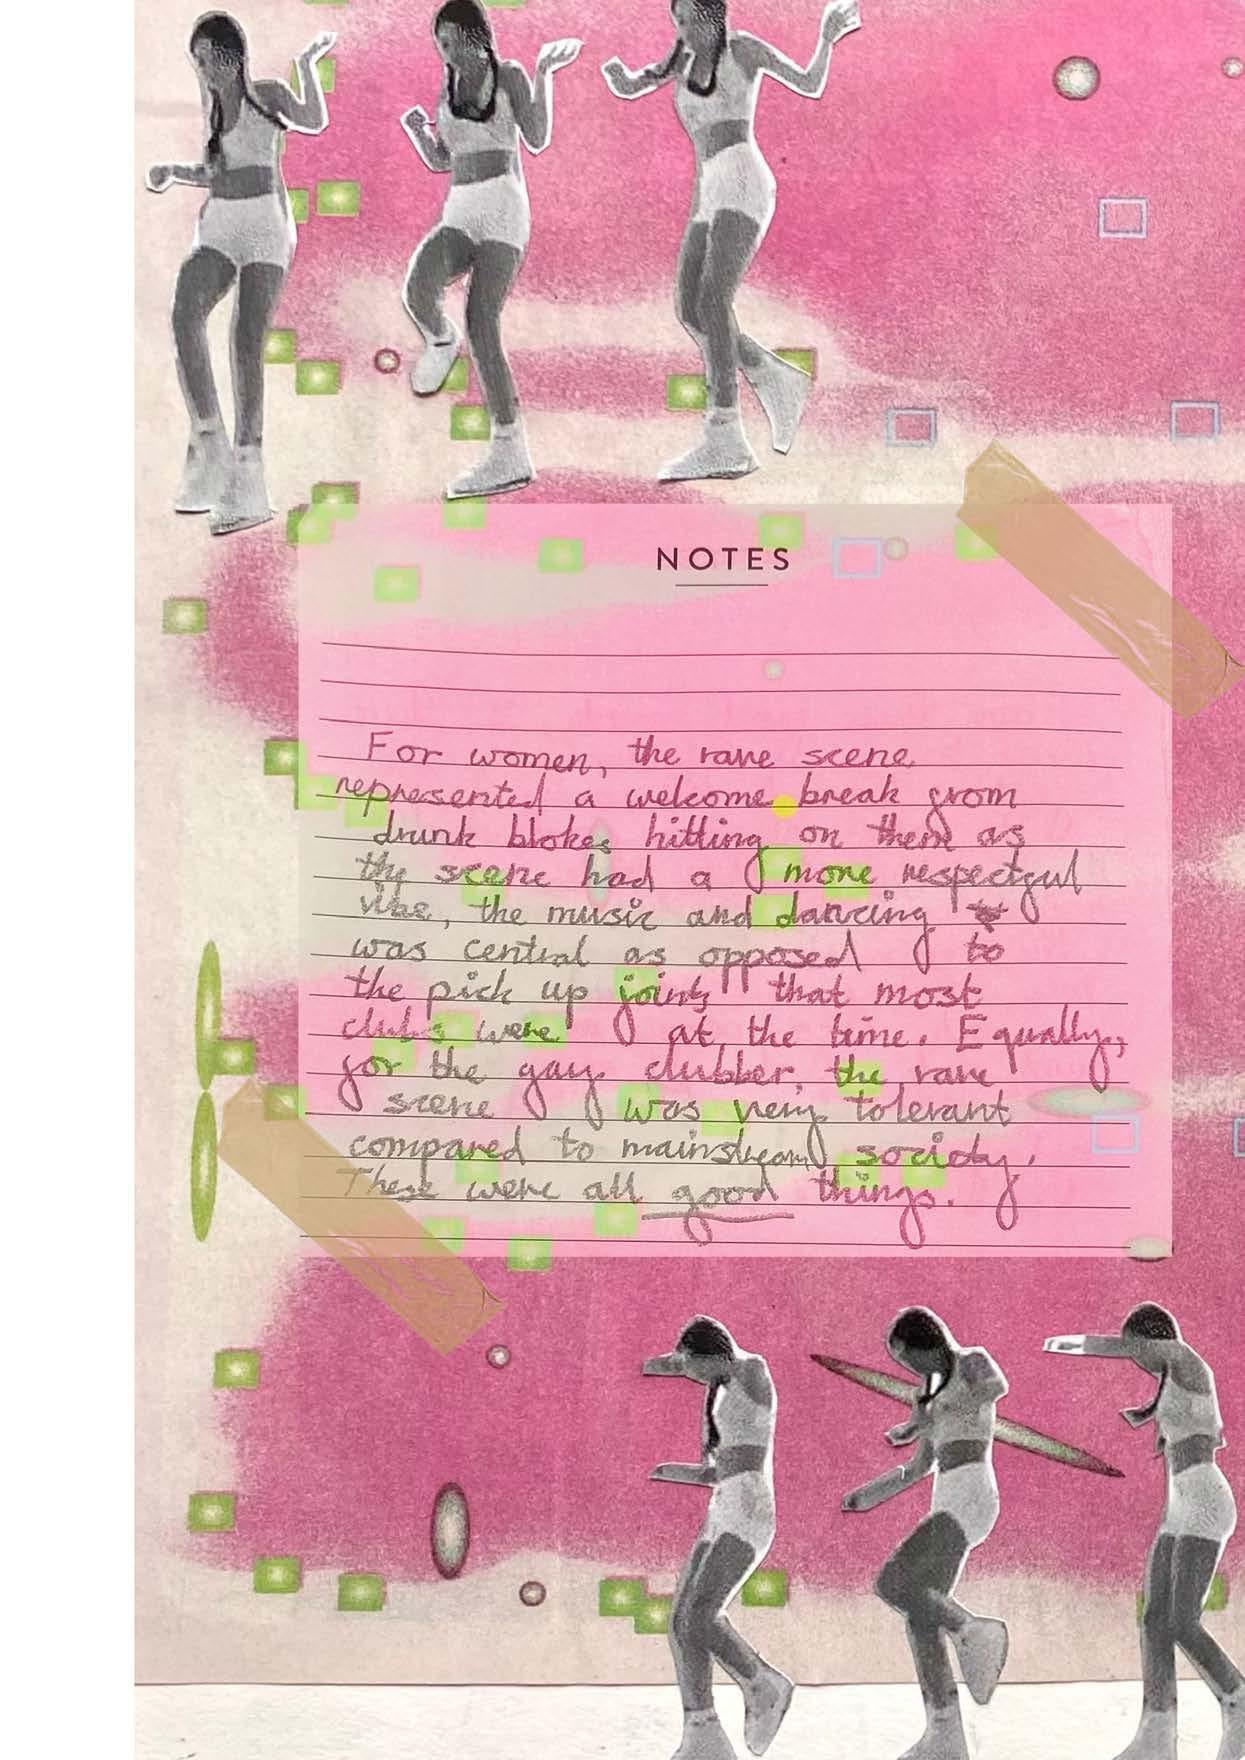 NOTES
For women, the rave scene
represented a welcome break from
drunk blokes hitting on them as
the scene had a more respectful
vibe, the music and dancing
was central as opposed to
the pick up joints that most
clubs were at the time. Equally,
for the gay clubber, the rave
scene was very tolerant
compared to mainstream society.
These were all good things.